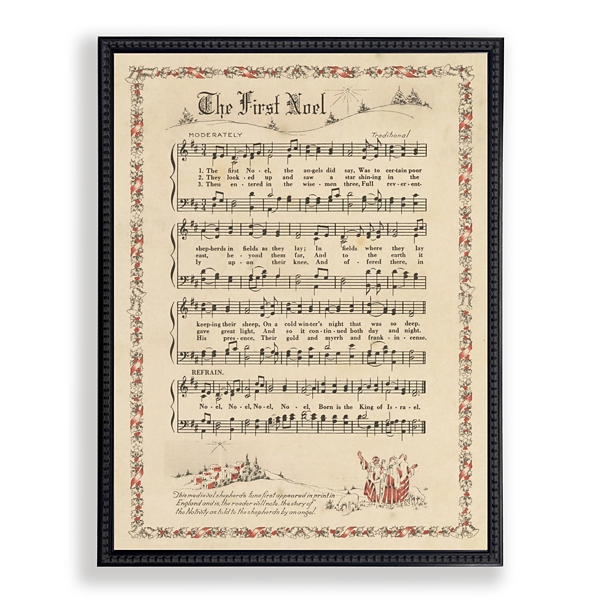 The First Noel
MODERATELY Traditional
1. The first No - el, the an-gels did say, Was to cer-tain poor
2. They look - ed up and saw a star shin-ing in the
3. Then en - tered in the wise - men three, Full rev - er-ent-
shep-herds in fields as they lay; In fields where they lay
east, be - yond them far, And to the earth it
ly up - on their knee, And of - fered there, in
keep-ing their sheep, On a cold win-ter's night that was so deep.
gave great light, And so it con-tin-ued both day and night.
His pres - ence, Their gold and myrrh and frank - in - cense.
REFRAIN.
No - el, No-el, No-el, No - el, Born is the King of Is - ra - el.
This medieval shepherd's tune first appeared in print in
England and is, the reader will note, the story of
the Nativity as told to the shepherds by an angel.